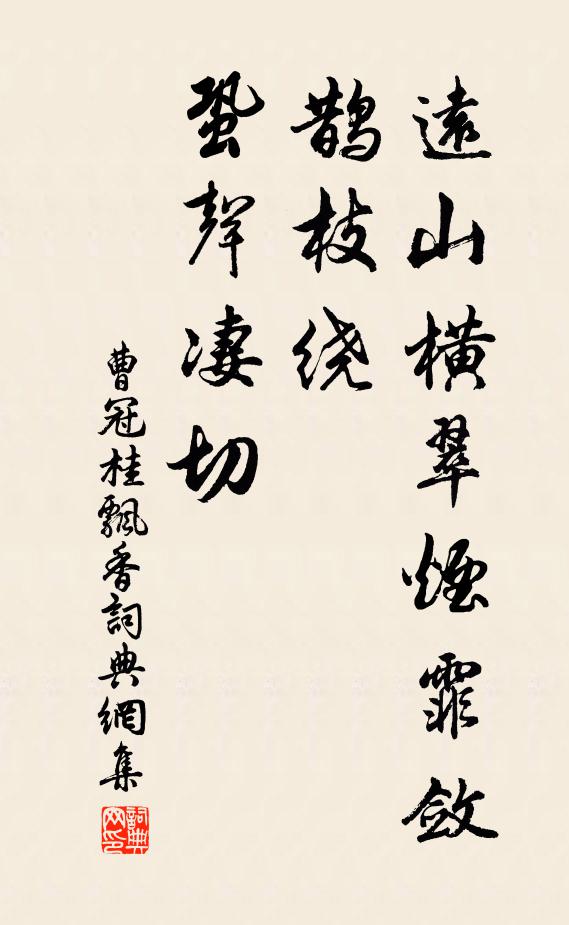 遠山橫翠煙霏斂
鵲枝绕
蛩聲凄切
曹冠桂飄香詞典網集
詞典网印